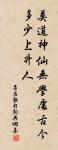 莫道神仙無學處古今
多少上升人
呂岩